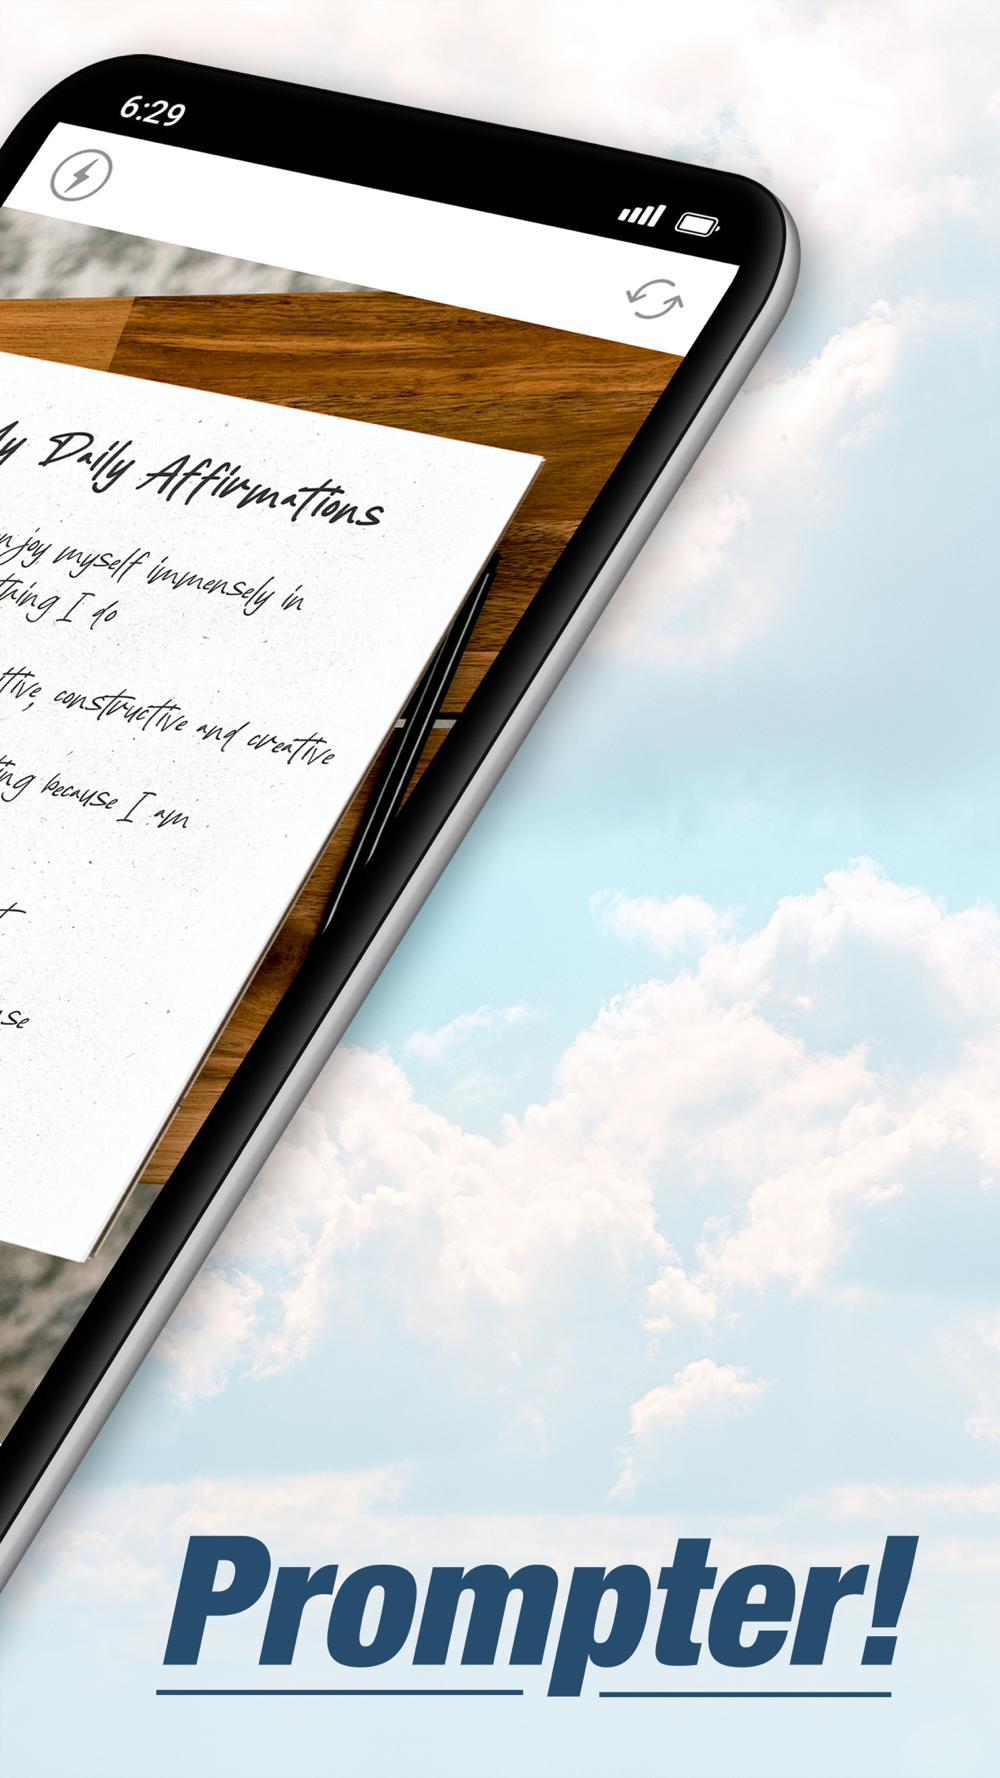 6:29
Daily Affirmations
myself immensely in
I do
constructive and creative
because I am
Prompter!